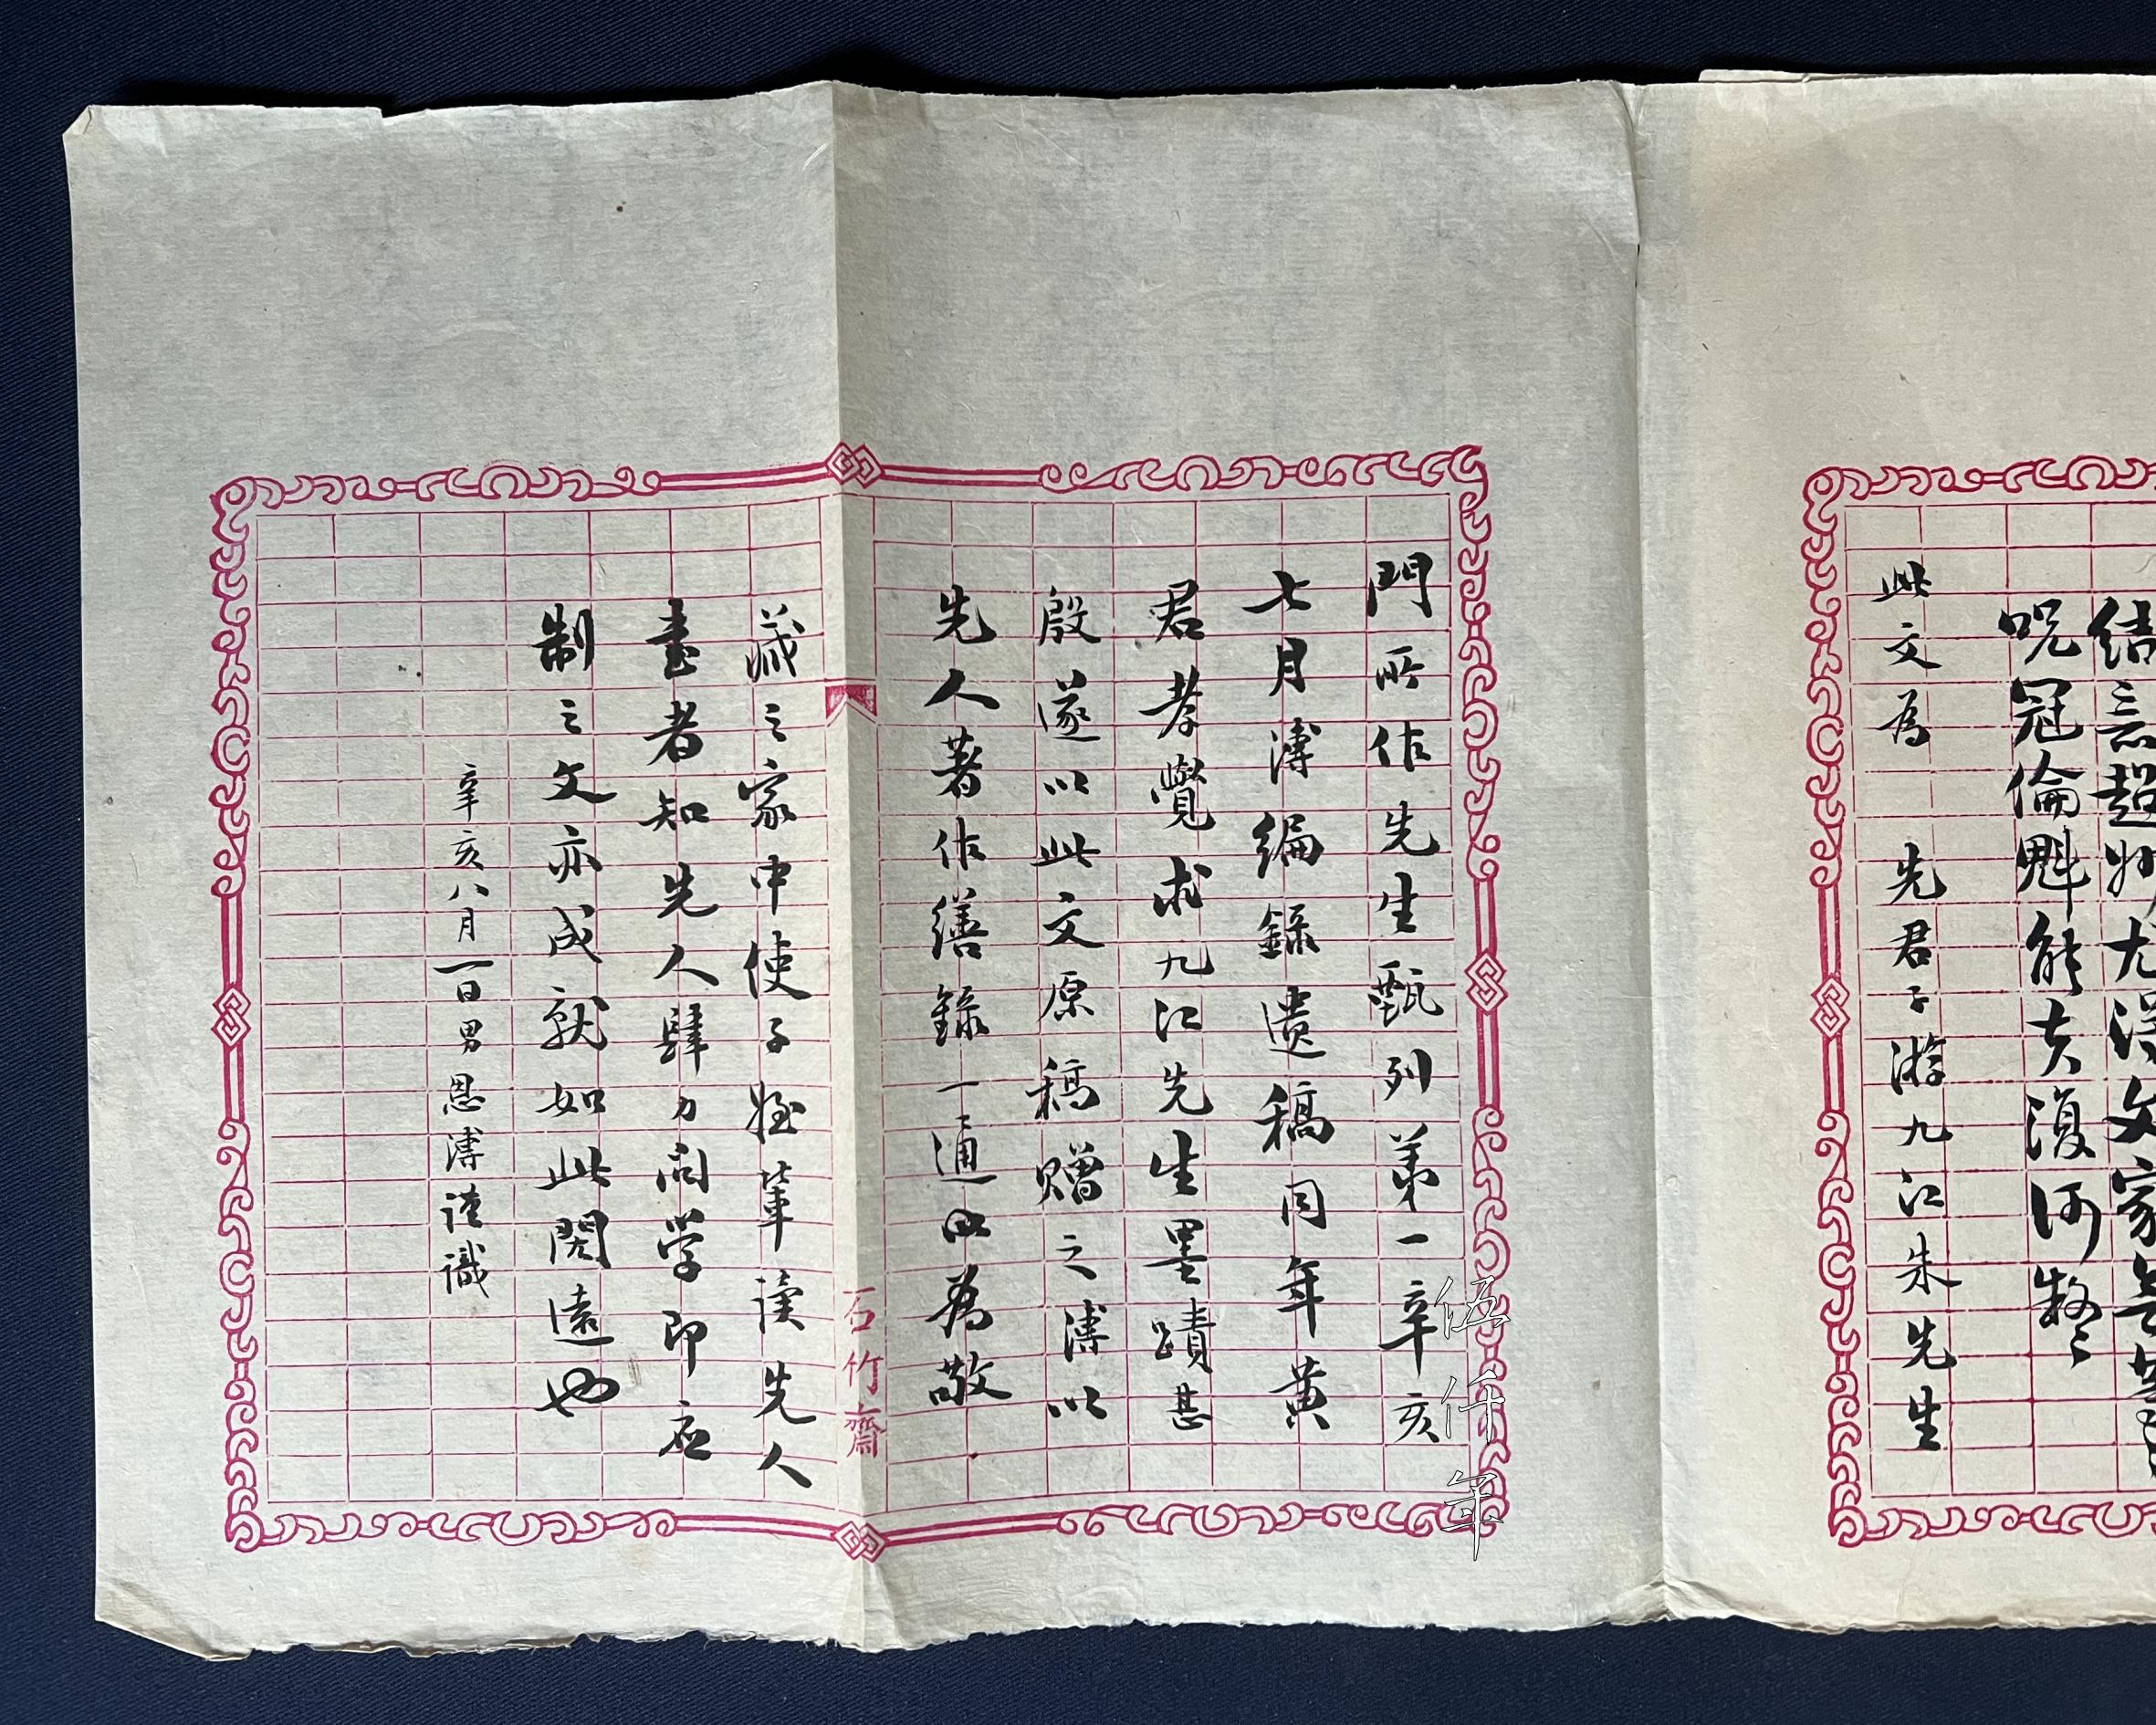 結言超妙尤得文家
冠倫魁能
此文為 先君子游九江朱先生
門所作先生甄列第一辛亥
七月溥編錄遺稿同年黃
君孝覺求九江先生墨蹟甚
殷遂以此文原稿贈之溥以
先人著作繕錄一通為敬
藏之家中使子姪輩讀先人
書者知先人肆力問學即應
制之文亦成就如此閎遠也
辛亥八月一日男恩溥謹識
石竹齋
伍仟年